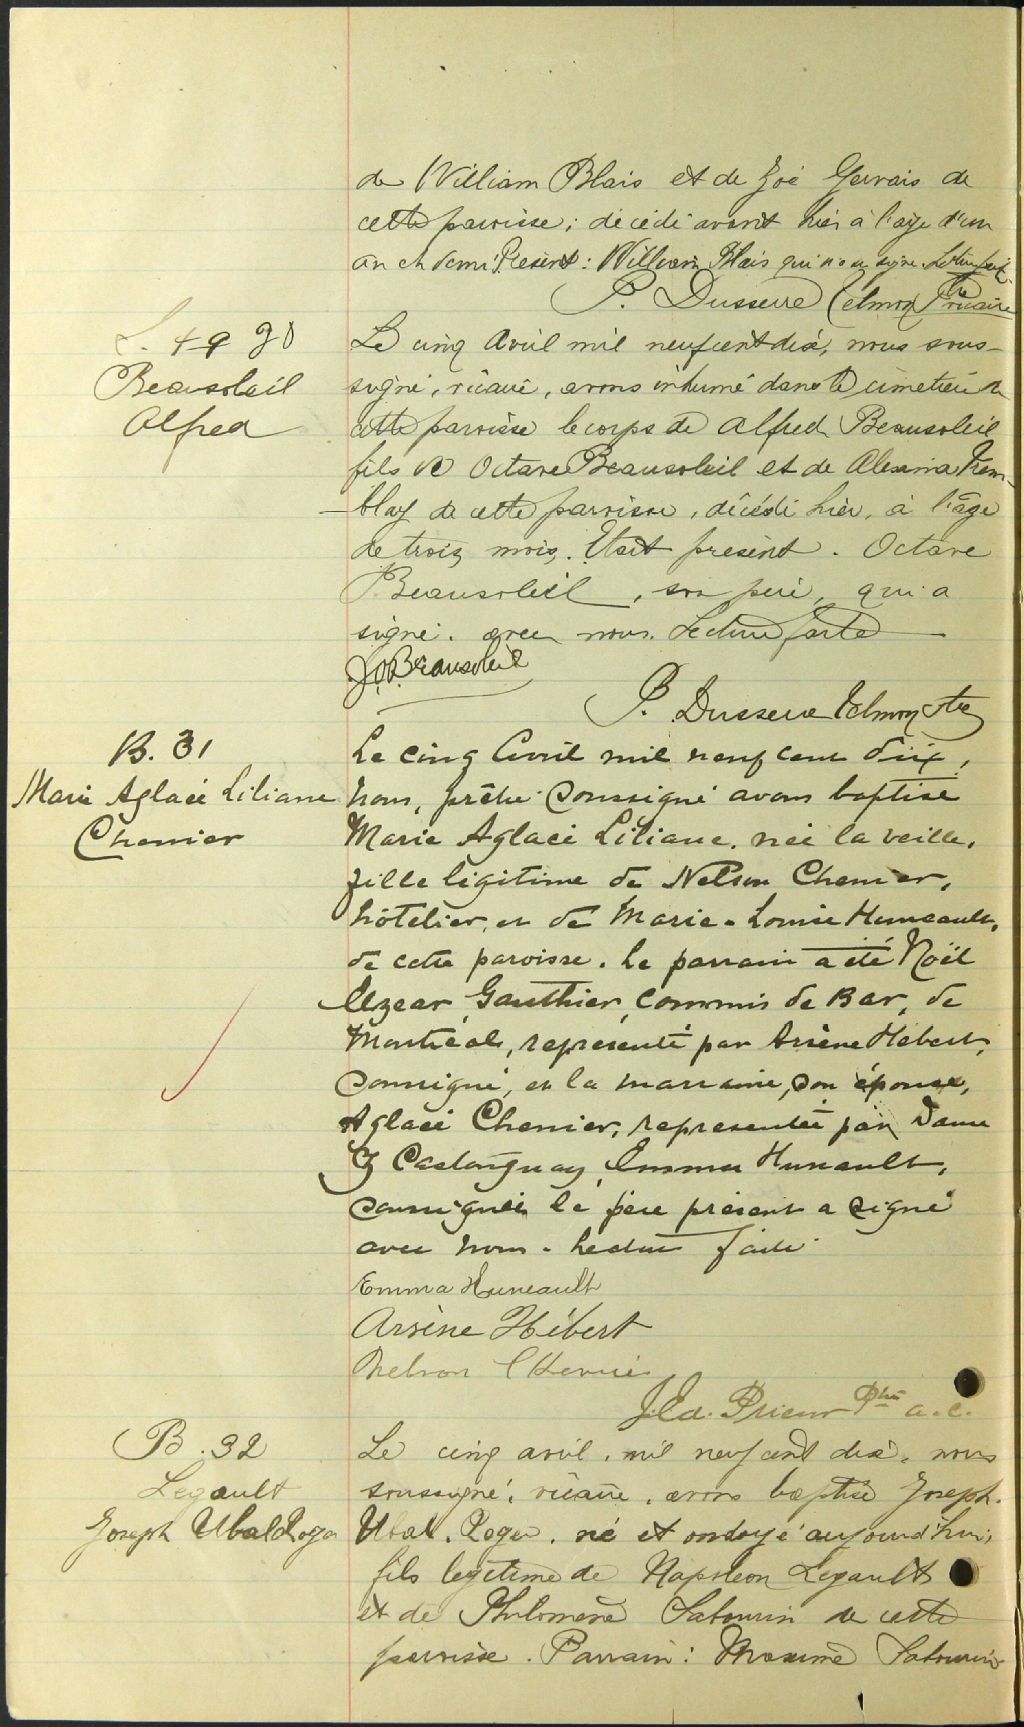 de William Blais et de Zoé Gervais de
cette paroisse; décédé avant hier à l'age d'un
an et demi Présent: William Blais qui n'a su signer. Lecture faite
P. Dusserre Telmon Ptre vicaire
S. 49
Beausoleil
Alfred
Le cinq Avril mil neuf cent dix, nous sous-
signé, vicaire, avons inhumé dans le cimetière de
cette paroisse le corps de Alfred Beausoleil
fils de Octave Beausoleil et de Alexina Trem-
-blay de cette paroisse, décédé hier, à l'âge
de trois mois. Etait présent. Octave
Beausoleil, son père, qui a
signé. avec nous. Lecture faite
J.O. Beausoleil
P. Dusserre Telmon Ptre
B. 31
Marie Aglaée Liliane
Chenier
Le cinq Avril mil neuf cent dix,
Nous, prêtre soussigné avons baptisé
Marie Aglaée Liliane, née la veille,
fille légitime de Nelson Chenier,
hôtelier, et de Marie-Louise Huneault,
de cette paroisse. Le parrain a été Noël
Elzear Gauthier, commis de Bar, de
Montréal, représenté par Arsène Hébert,
soussigné, et la marraine, son épouse,
Aglaée Chenier, représentée par Dame
Castonguay, Emma Hunault,
soussignés le père présent a signé
avec nous. Lecture faite.
Emma Huneault
Arsène Hébert
Nelson Chenier
J. Ed. Prieur Ptre a.c.
B. 32
Legault
Joseph Ubald Roger
Le cinq avril, mil neuf cent dix, nous
soussigné, vicaire, avons baptisé Joseph.
Ubal. Roger. né et ondoyé aujourd'hui,
fils légitime de Napoléon Legault
et de Philomène Sabourin de cette
paroisse. Parrain: Maxime Sabourin